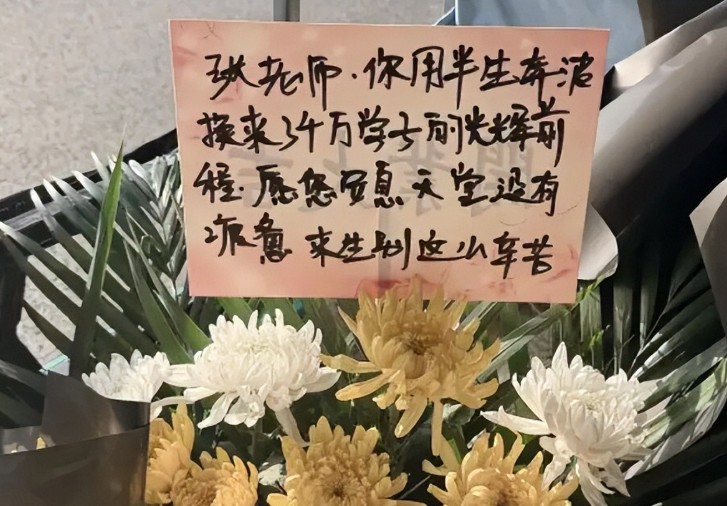 张老师，你用半生奔波
换来了千万学子的光辉前
程.愿您安息天堂没有
疲惫 来生别这么辛苦